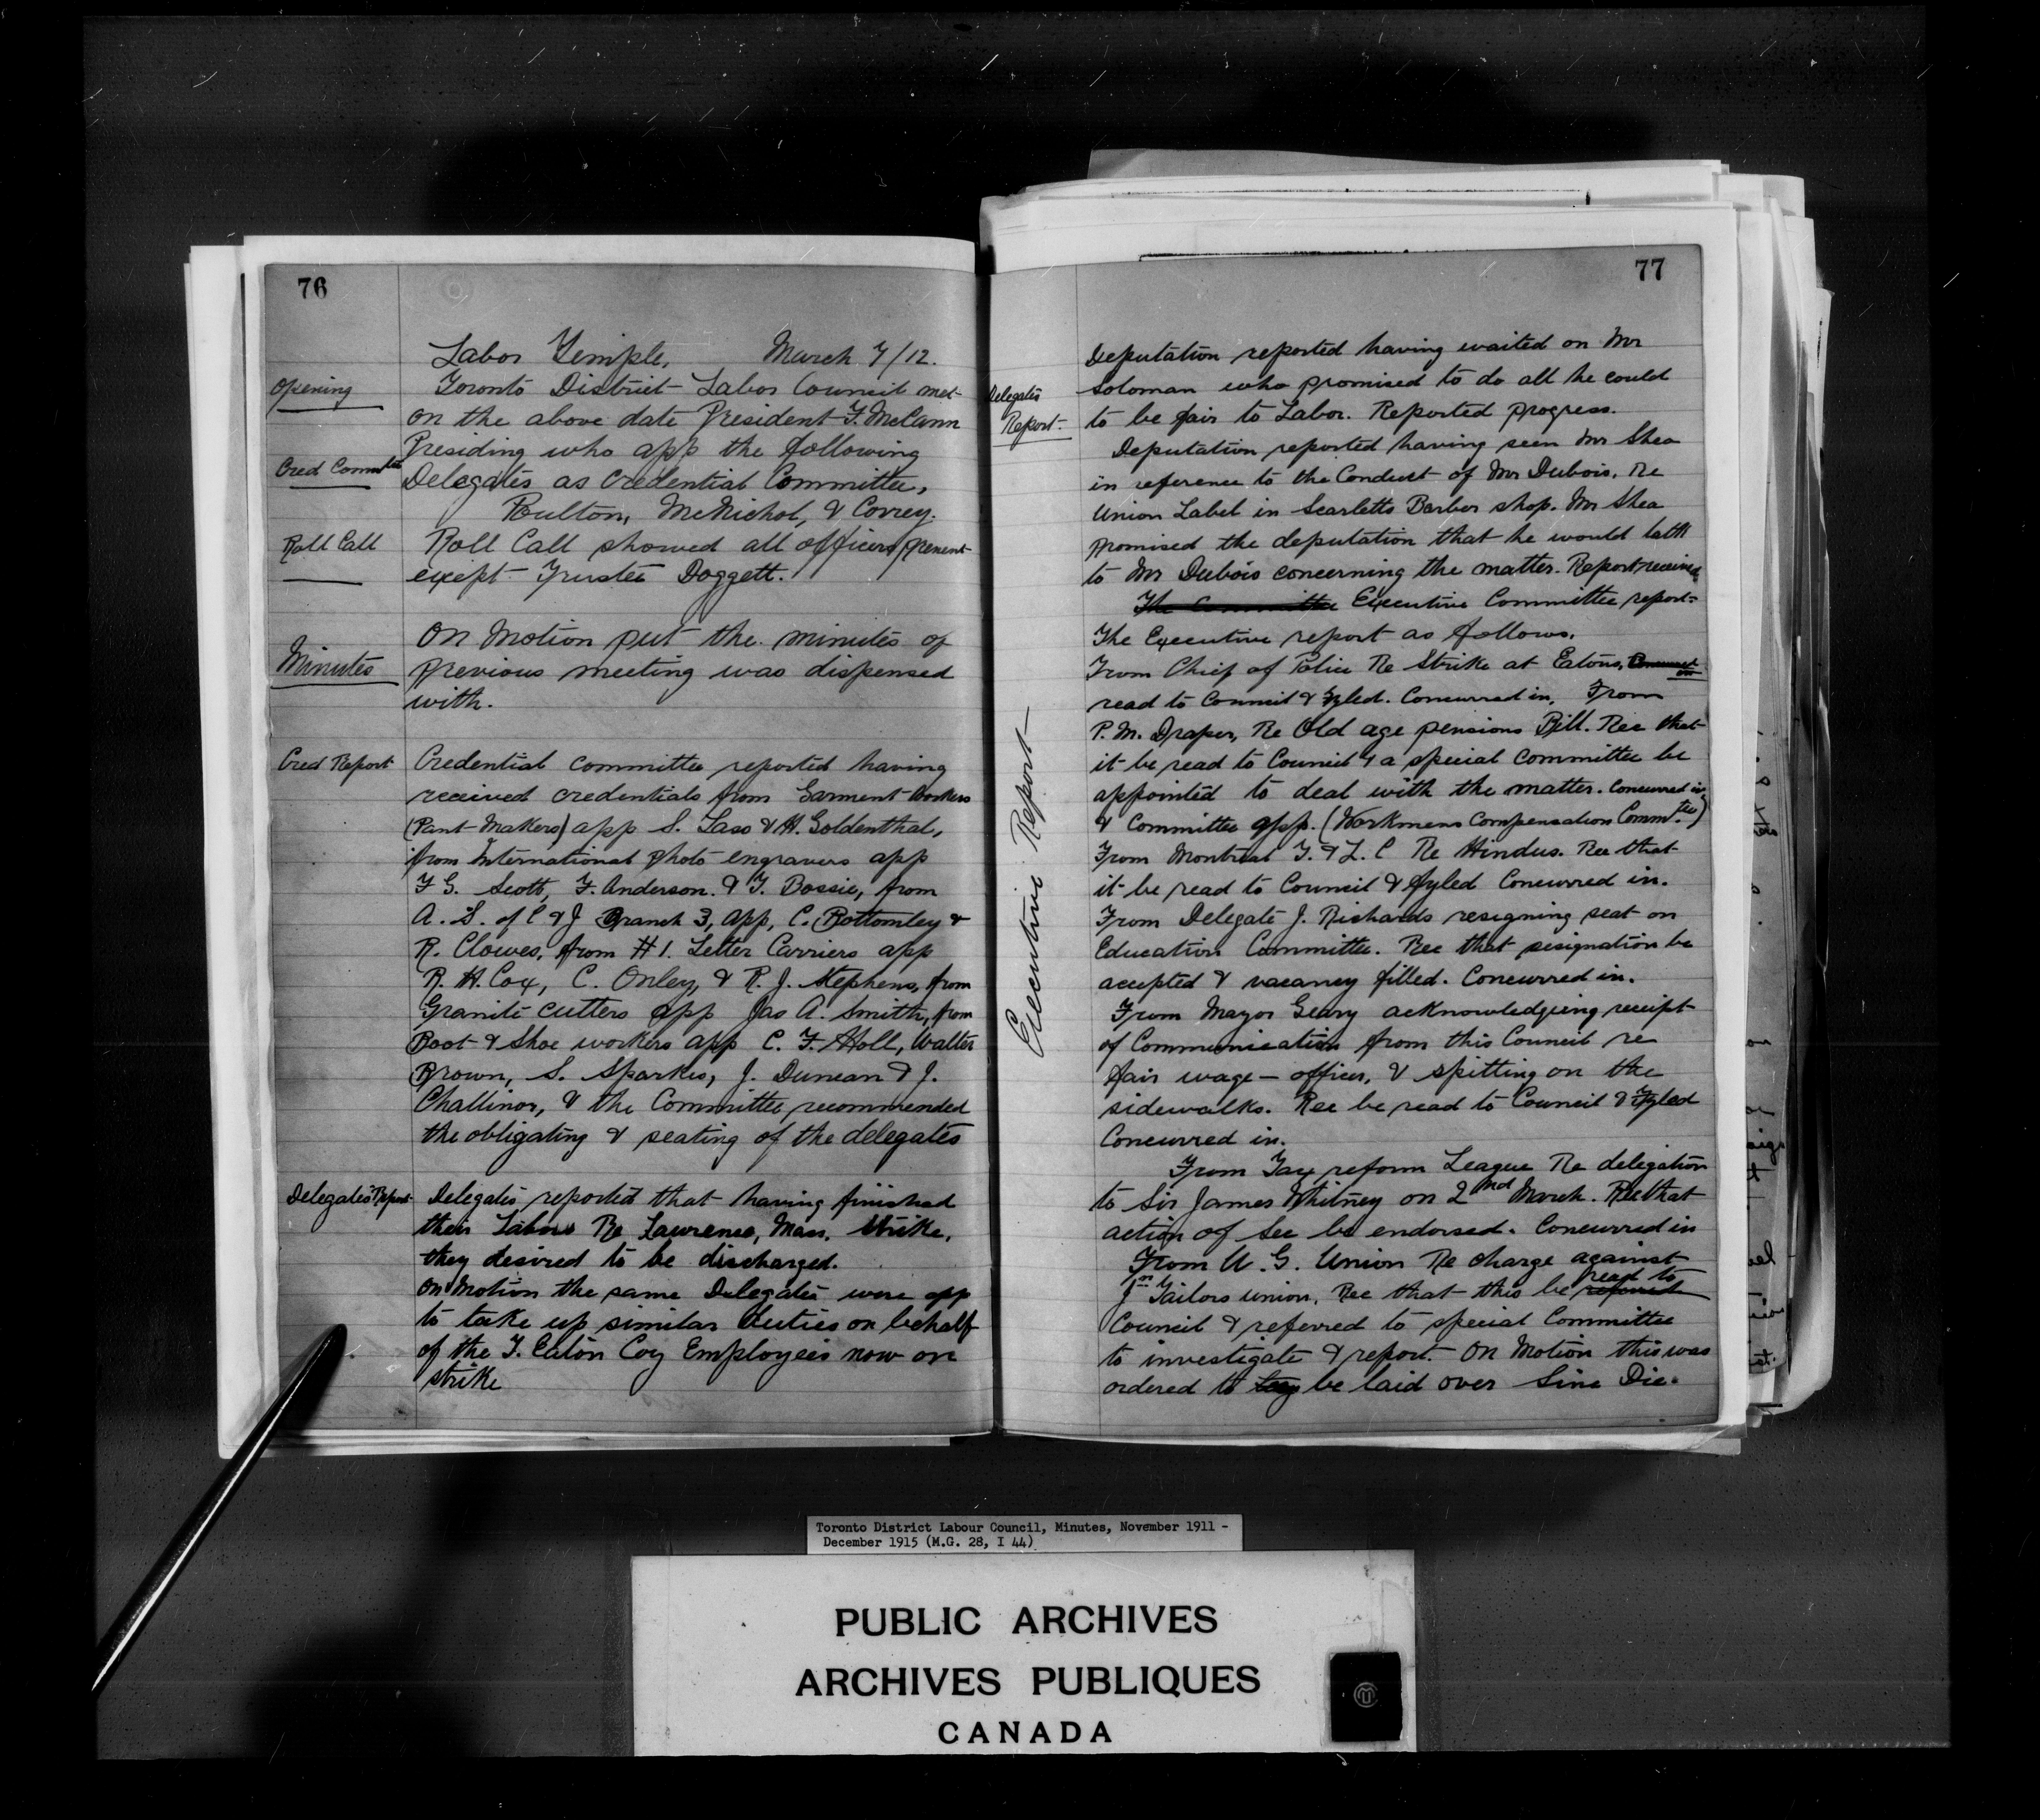 76
Labor Temple, March 7/12.
Opening
Toronto District Labor Council met
on the above date President F. McCann
Presiding who app the following
Cred Commtee
Delegates as Credential Committee,
Bulton, McNichol, & Correy.
Roll Call
Roll Call showed all officers present
except Trustee Doggett.
Minutes
On Motion put the minutes of
previous meeting was dispensed
with.
Cred Report
Credential committee reported having
received credentials from Garment Workers
(Pant Makers) app S. Laso & H. Goldenthal,
from International photo engravers app
F G. Scott, F. Anderson. & T. Bossie, from
A. S. of C & J Branch 3, app, C. Bottomley &
R. Clowes, from #1. Letter Carriers app
R. H. Cox, C. Onley, & R. J. Stephens, from
Granite cutters app Jas A. Smith, from
Boot & Shoe workers app C. F. Holl, Walter
Brown, S. Sparkes, J. Duncan & J.
Challinor, & the Committee recommended
the obligating & seating of the delegates
Delegates Report
Delegates reported that having finished
their Labors Re Lawrence, Mass. Strike,
they desired to be discharged.
On Motion the same Delegates were app
to take up similar duties on behalf
of the T. Eaton Coy Employees now on
strike
77
Deputation reported having waited on Mr
Delegates Report
Soloman who promised to do all he could
to be fair to Labor. Reported progress.
Deputation reported having seen Mr Shea
in reference to the Conduct of Mr Dubois. Re
Union Label in Scarletts Barber shop. Mr Shea
promised the deputation that he would talk
to Mr Dubois concerning the matter. Report received
The Committee Executive Committee report
Executive Report
The Executive report as follows.
From Chief of Police Re Strike at Eatons,
read to Council & fyled. Concurred in, From
P. M. Draper, Re Old age pensions Bill. Rec that
it be read to Council & a special Committee be
appointed to deal with the matter. Concurred in,
& Committee app. (Workmens Compensation Commtee)
From Montreal T. & L. C Re Hindus. Rec that
it be read to Council & fyled Concurred in.
From Delegate J. Richards resigning seat on
Education Committee. Rec that resignation be
accepted & vacancy filled. Concurred in.
From Mayor Geary acknowledgeing receipt
of Communication from this Council re
fair wage officer, & spitting on the
sidewalks. Rec be read to Council & Fyled
Concurred in.
From Tax reform League Re delegation
to Sir James Whitney on 2nd March. Rec that
action of Sec be endorsed. Concurred in
From U. G. Union Re charge against
Jn Tailors union, Rec that this be referred read to
Council & referred to special Committee
to investigate & report. On Motion this was
ordered to be laid over Sine Die.
Toronto District Labour Council, Minutes, November 1911 -
December 1915 (M.G. 28, I 44)
PUBLIC ARCHIVES
ARCHIVES PUBLIQUES
CANADA